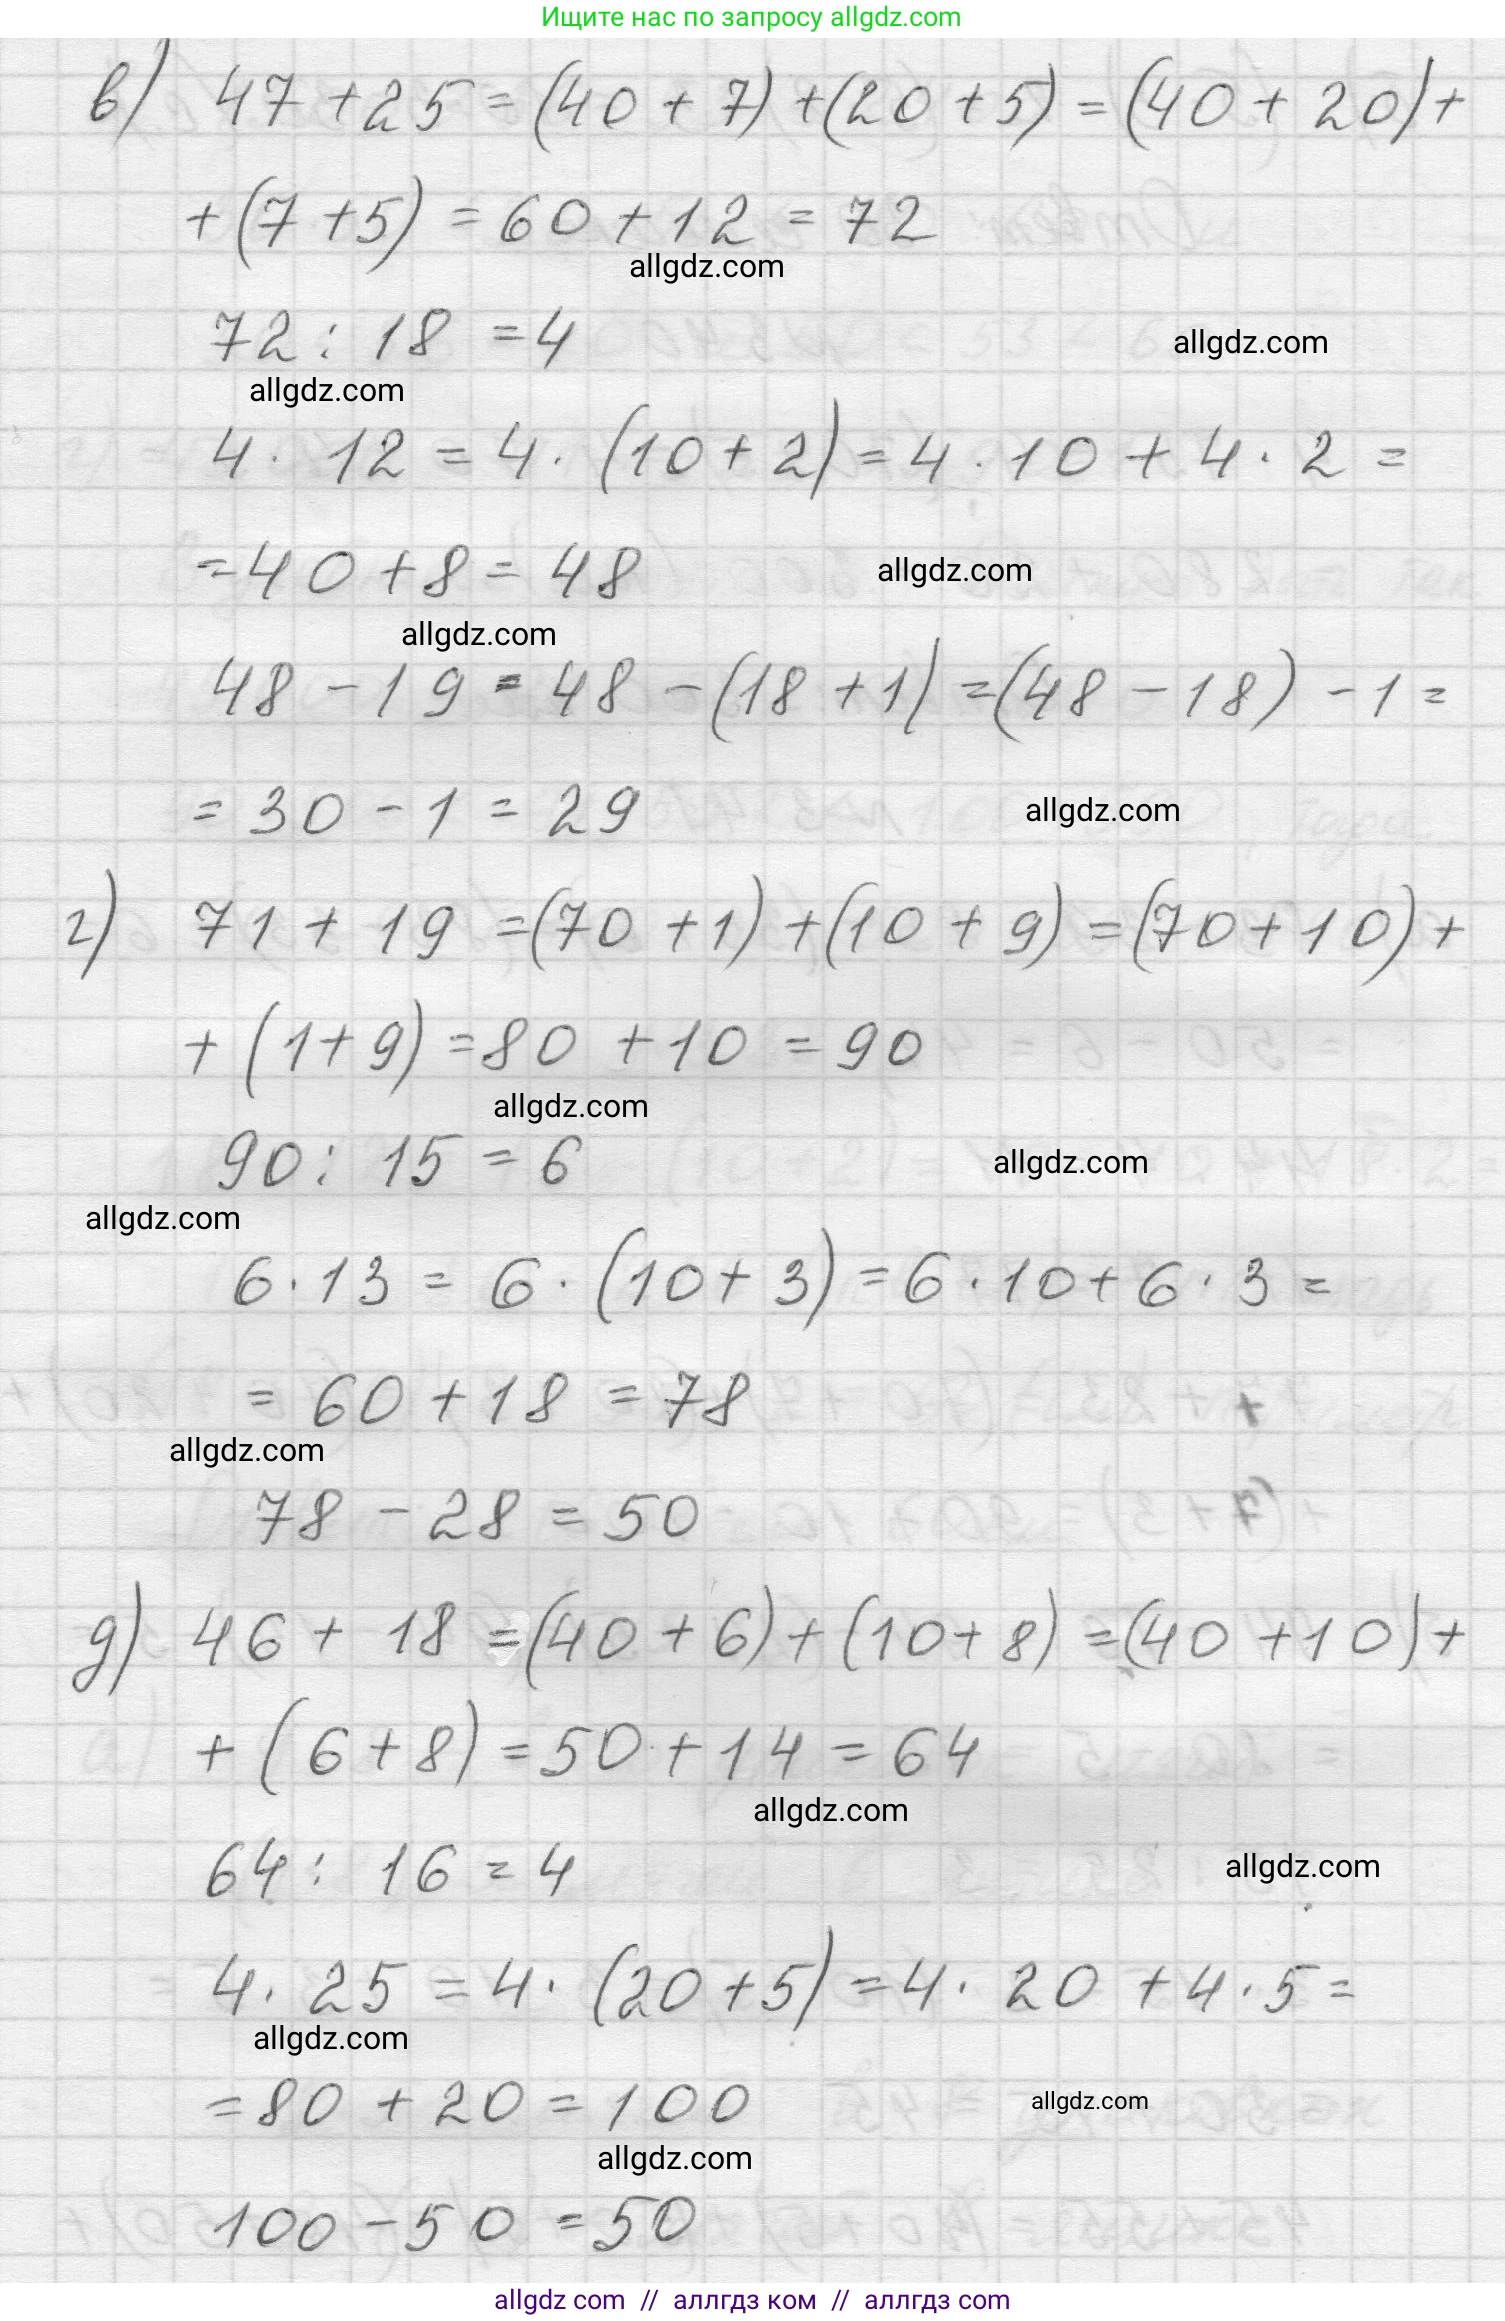 Ищите нас по запросу allgdz.com
в) 47 + 25 = (40 + 7) + (20 + 5) = (40 + 20) +
+ (7 + 5) = 60 + 12 = 72
allgdz.com
72 : 18 = 4
allgdz.com
allgdz.com
4 · 12 = 4 · (10 + 2) = 4 · 10 + 4 · 2 =
= 40 + 8 = 48
allgdz.com
allgdz.com
48 - 19 = 48 - (18 + 1) = (48 - 18) - 1 =
= 30 - 1 = 29
allgdz.com
г) 71 + 19 = (70 + 1) + (10 + 9) = (70 + 10) +
+ (1 + 9) = 80 + 10 = 90
allgdz.com
90 : 15 = 6
allgdz.com
allgdz.com
6 · 13 = 6 · (10 + 3) = 6 · 10 + 6 · 3 =
= 60 + 18 = 78
allgdz.com
78 - 28 = 50
д) 46 + 18 = (40 + 6) + (10 + 8) = (40 + 10) +
+ (6 + 8) = 50 + 14 = 64
allgdz.com
64 : 16 = 4
allgdz.com
4 · 25 = 4 · (20 + 5) = 4 · 20 + 4 · 5 =
allgdz.com
= 80 + 20 = 100
allgdz.com
allgdz.com
100 - 50 = 50
allgdz.com // аллгдз ком // аллгдз com